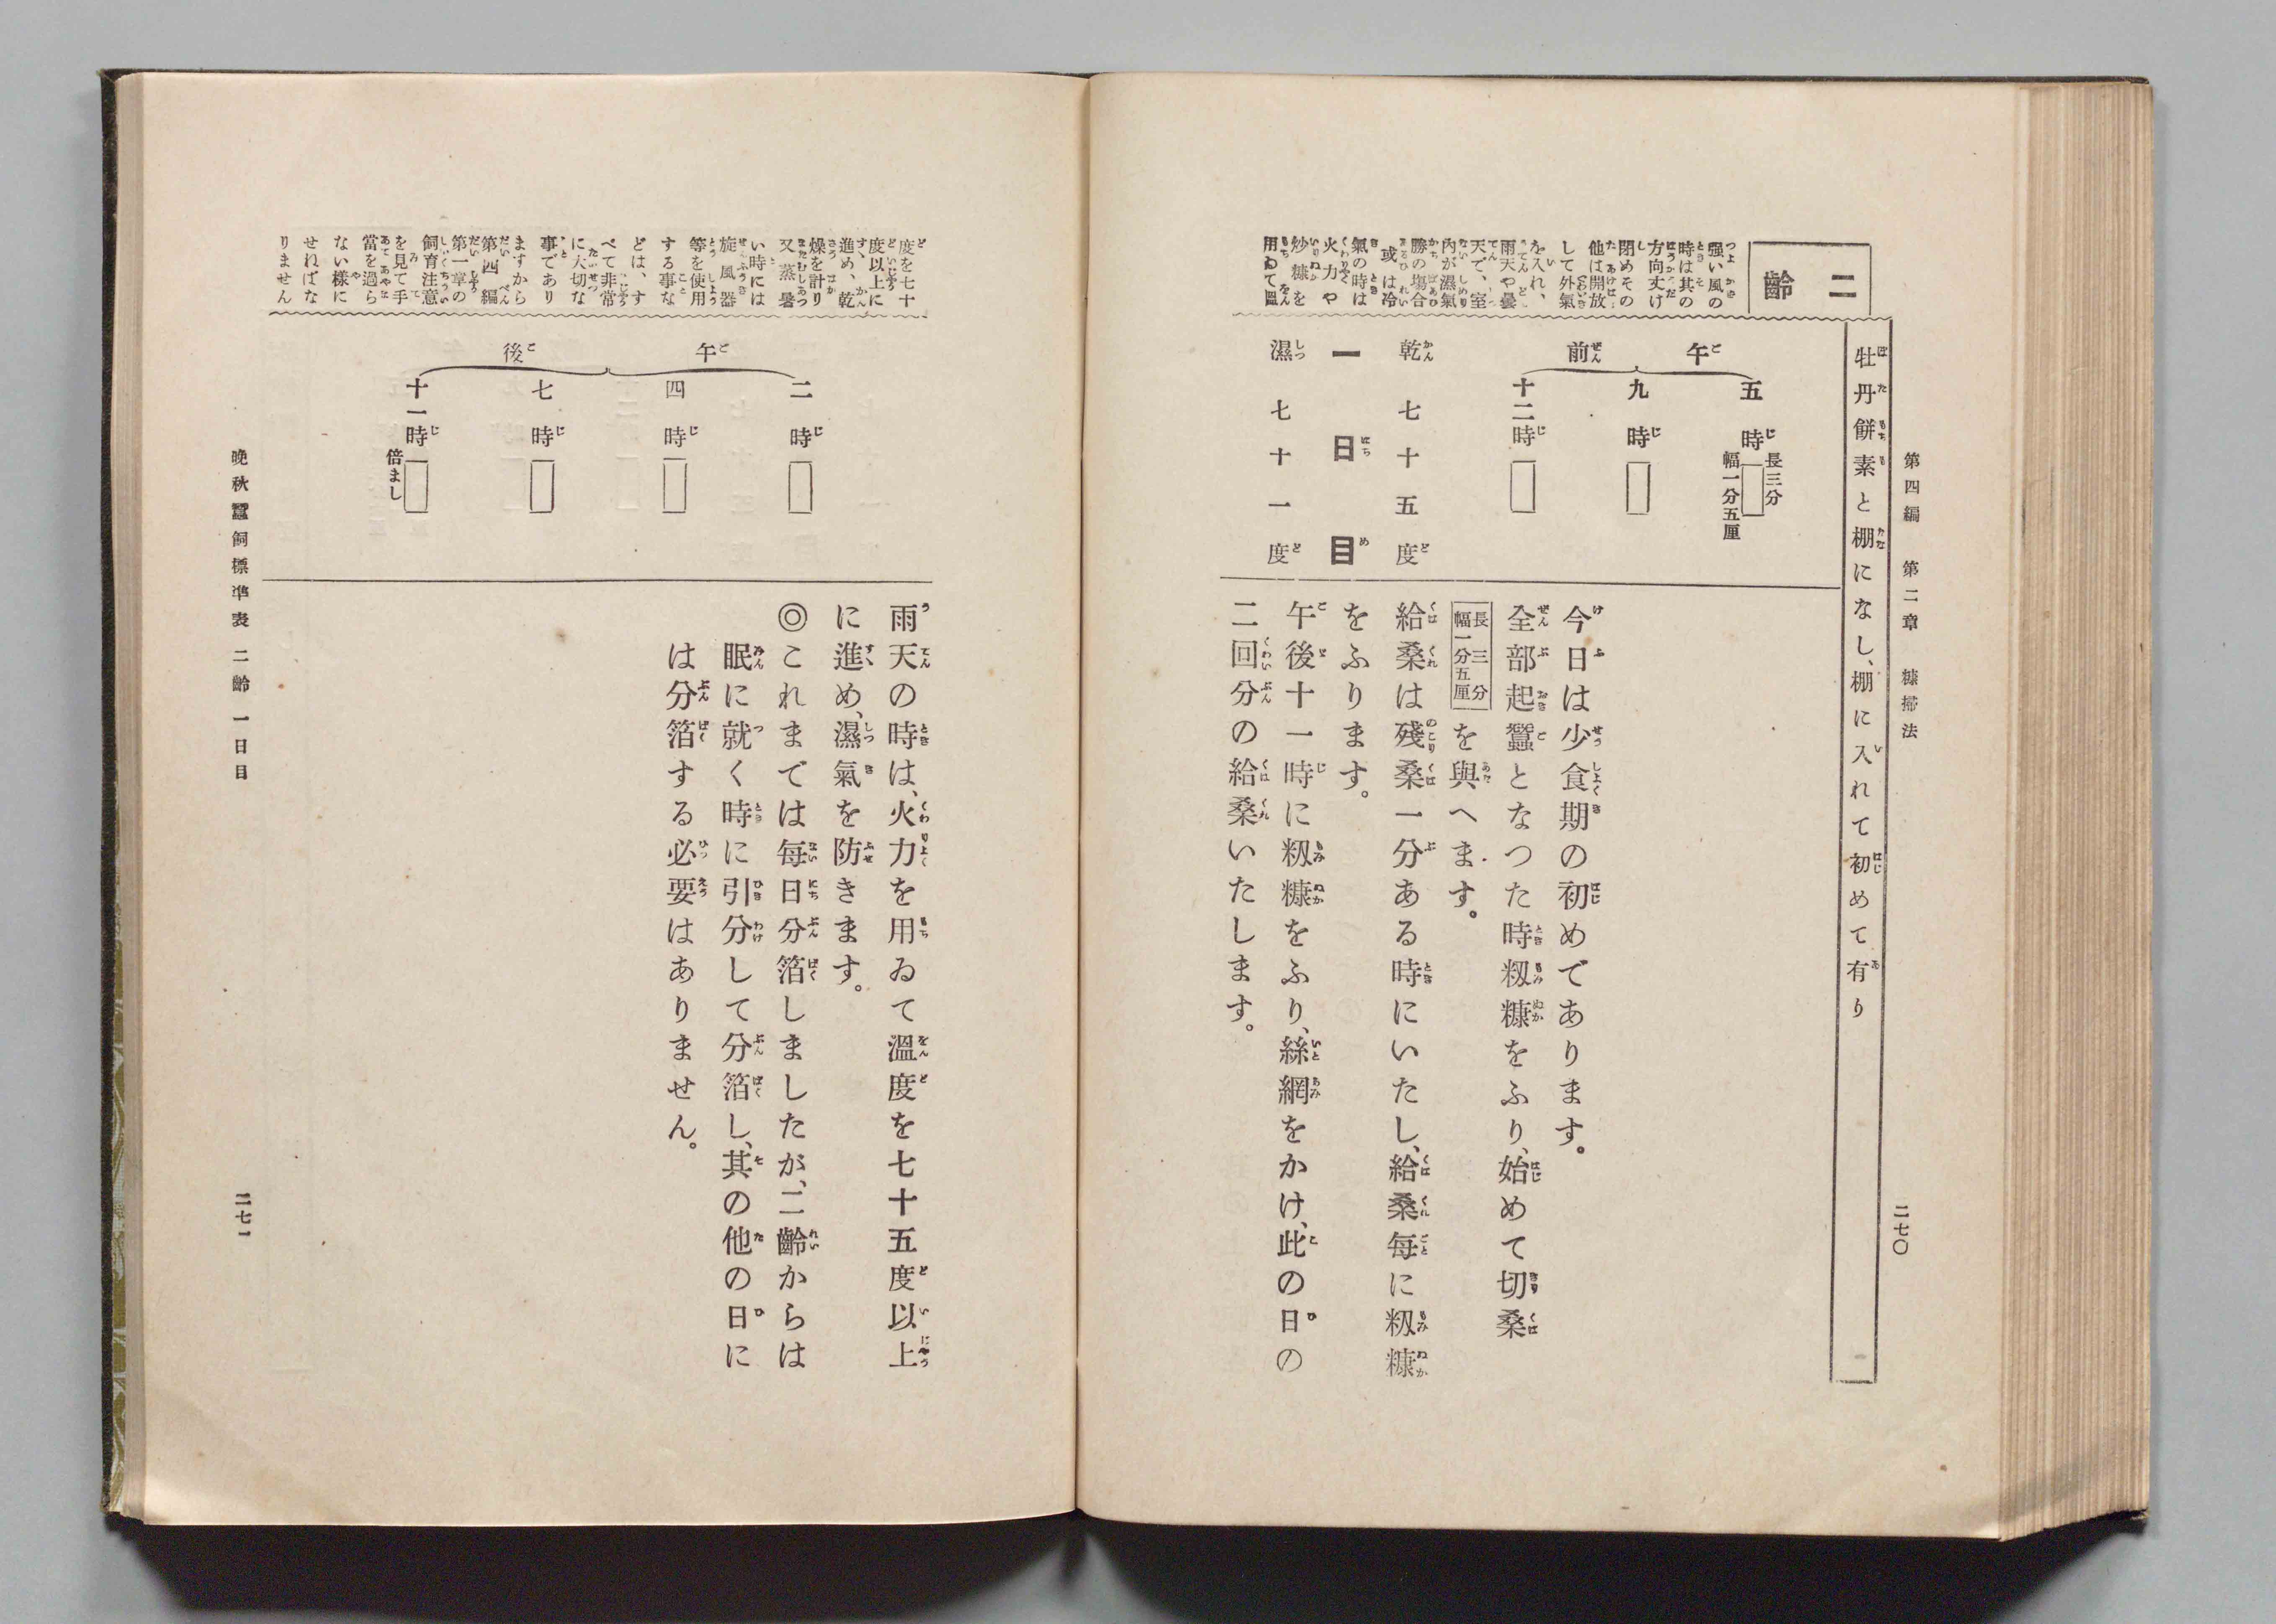 第四編　第二章　糠掃法
二七〇
牡丹餅素と棚になし、棚に入れて初めて有り
二齡
强い風の
時は其の
方向丈け
閉めその
他は開放
して外氣
を入れ、
雨天や曇
天で、室
內が濕氣
勝の場合
或は冷
氣の時は
火力や
炒糠を
用ゐて溫
午前
五時
長三分
幅一分五厘
九時
十二時
乾　七十五度
一日目
濕　七十一度
今日は少食期の初めであります。
全部起蠶となつた時籾糠をふり、始めて切桑
長三分
幅一分五厘
を與へます。
給桑は殘桑一分ある時にいたし、給桑每に籾糠
をふります。
午後十一時に籾糠をふり、絲網をかけ、此の日の
二回分の給桑いたします。
度を七十
度以上に
進め、乾
燥を計り
又蒸暑
い時には
旋風器
等を使用
する事な
どは、す
べて非常
に大切な
事であり
ますから
第四編
第一章の
飼育注意
を見て手
當を過ら
ない樣に
せねばな
りません
午後
二時
四時
七時
十一時
倍まし
雨天の時は、火力を用ゐて溫度を七十五度以上
に進め、濕氣を防きます。
◎これまでは每日分箔しましたが、二齡からは
眠に就く時に引分して分箔し、其の他の日に
は分箔する必要はありません。
晩秋蠶飼標準表　二齡　一日目
二七一